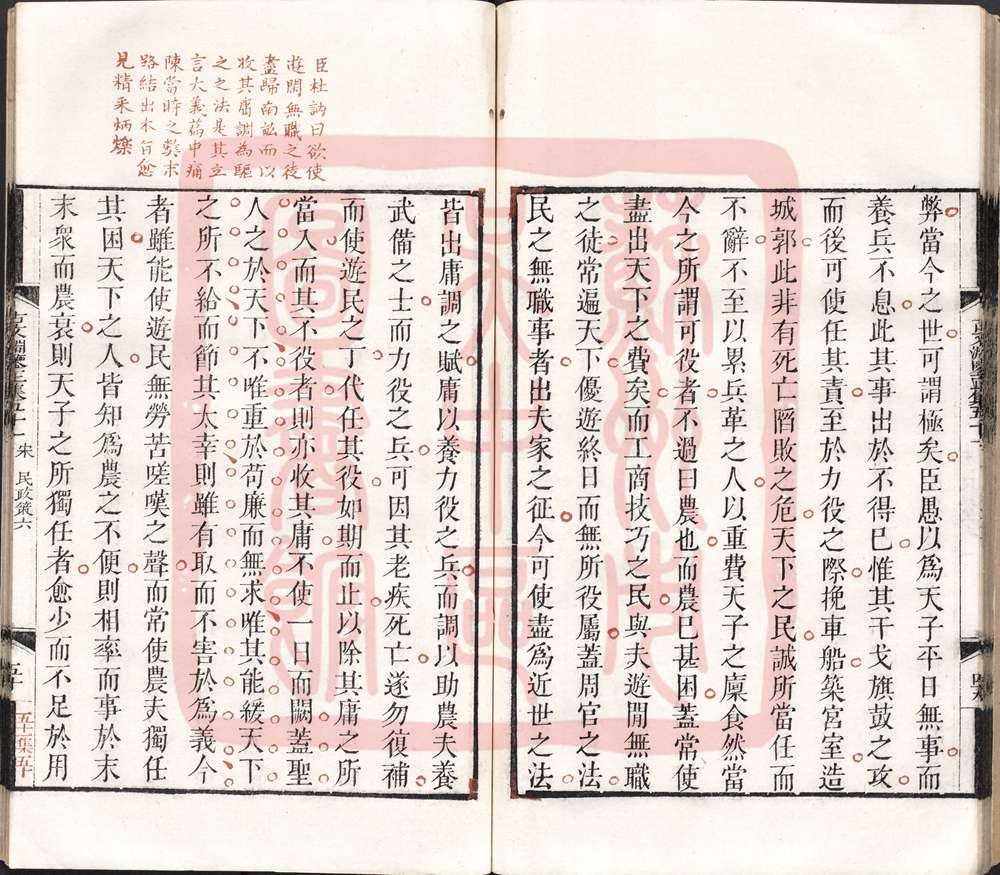 弊當今之世可謂極矣臣愚以爲天子平日無事而
養兵不息此其事出於不得已惟其干戈旗鼓之攻
而後可使任其責至於力役之際挽車船築宮室造
城郭此非有死亡䧟敗之危天下之民誠所當任而
不辭不至以累兵革之人以重費天子之廩食然當
今之所謂可役者不過曰農也而農已甚困蓋常使
盡出天下之費矣而工商技巧之民與夫遊閒無職
之徒常遍天下優遊終日而無所役屬蓋周官之法
民之無職事者出夫家之征今可使盡爲近世之法
臣杜訥曰欲使
遊閒無職之徒
盡歸南畝而以
收其庸調為驅
之之法是其立
言大義篇中痛
陳當時之弊末
路結出本旨愈
見精采炳爍
皆出庸調之賦庸以養力役之兵而調以助農夫養
武備之士而力役之兵可因其老疾死亡遂勿復補
而使遊民之丁代任其役如期而止以除其庸之所
當入而其不役者則亦收其庸不使一日而闕蓋聖
人之於天下不唯重於苟廉而無求唯其能緩天下
之所不給而節其太幸則雖有取而不害於爲義今
者雖能使遊民無勞苦嗟嘆之聲而常使農夫獨任
其困天下之人皆知爲農之不便則相率而事於末
末衆而農衰則天子之所獨任者愈少而不足於用
宋 民政策六
五十一集五十